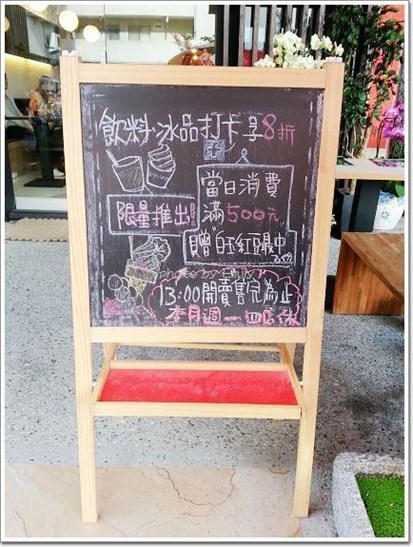 飲料冰品打卡享8折
當日消費
限量推出!
滿500元
贈"白玉紅豆最中"
13:00開賣售完為止
本月週一.四店休